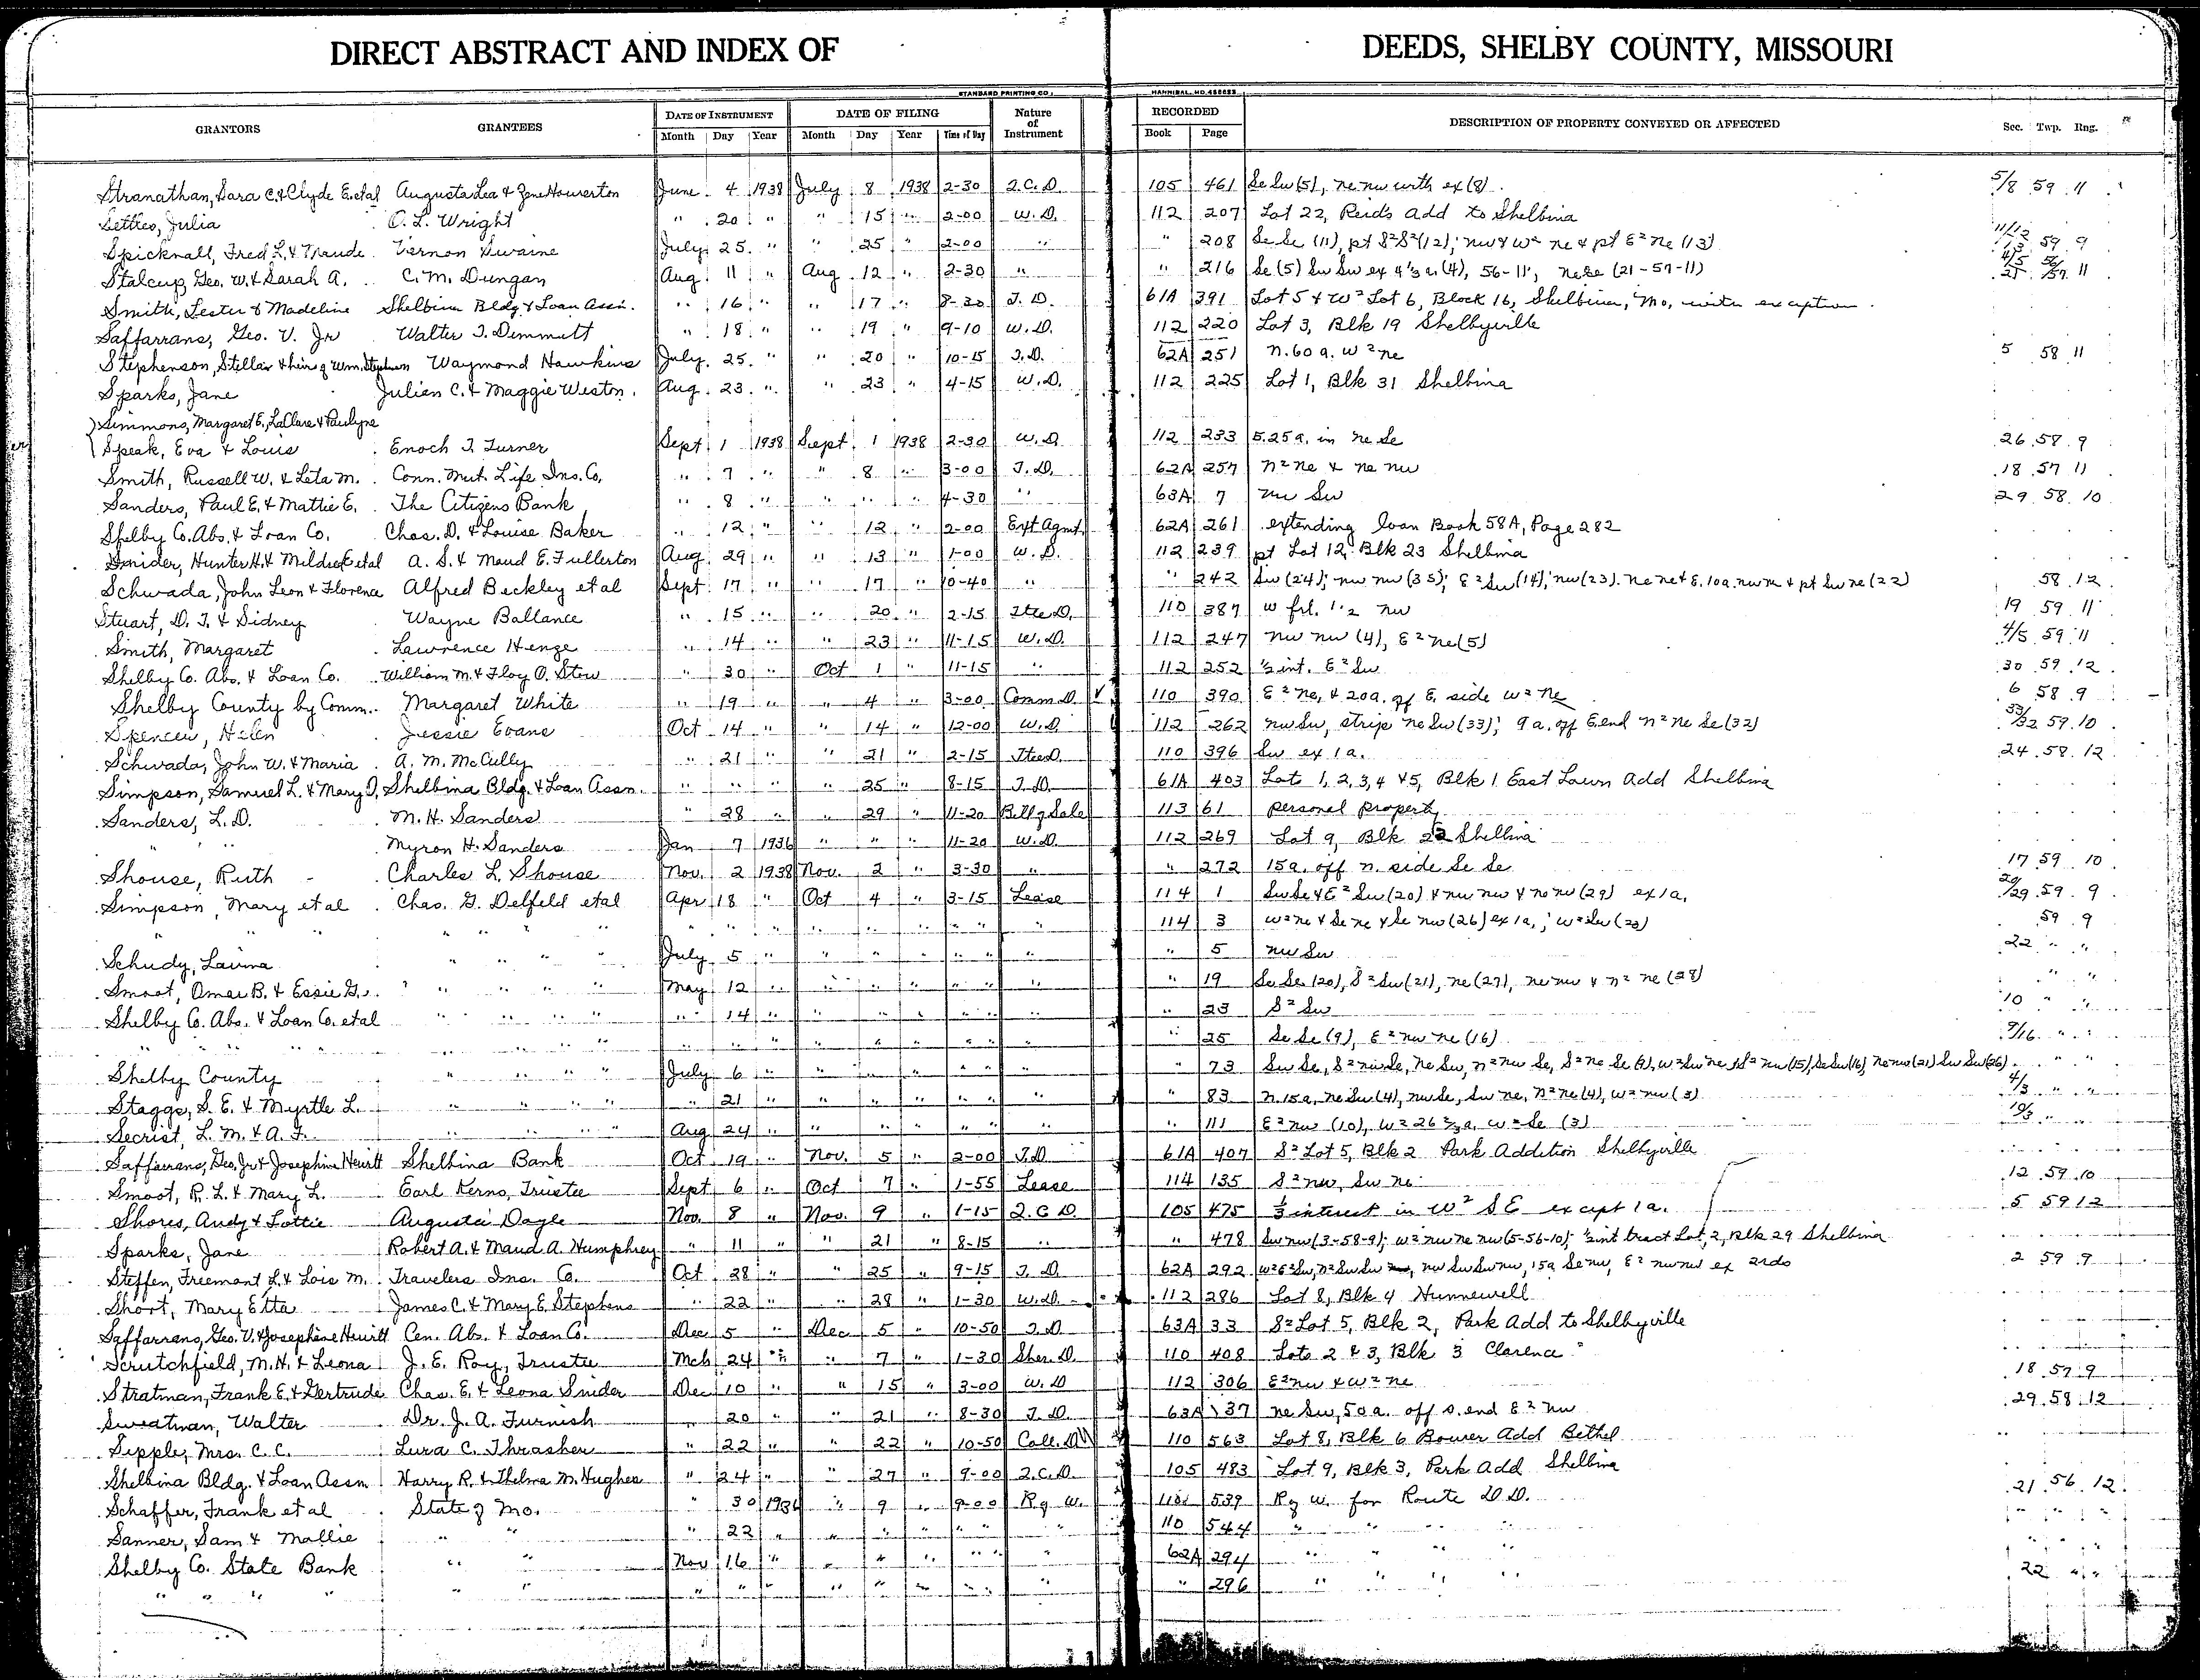 DIRECT ABSTRACT AND INDEX OF DEEDS, SHELBY COUNTY, MISSOURI
STANDARD PRINTING CO., HANNIBAL, MO.
GRANTORS GRANTEES DATE OF INSTRUMENT DATE OF FILING Nature of Instrument RECORDED DESCRIPTION OF PROPERTY CONVEYED OR AFFECTED Sec. Twp. Rng.
Month Day Year Month Day Year Time of Day Book Page
Stranathan, Sara C. & Clyde E. etal Augusta Lea & Zene Howerton June 4 1938 July 8 1938 2-30 Q.C.D. 105 461 Se Sw (5), ne nw with ex (8). 5/8 59 11
Settles, Julia O. L. Wright " 20 " " 15 " 2-00 W.D. 112 207 Lot 22, Reids add to Shelbina
Spicknall, Fred L. & Maude Vernon Swaine July 25 " " 25 " 2-00 " " 208 Se Se (11), pt S²S²(12); nw & w² ne & pt E² ne (13) 11/12 13 59 9
Stalcup, Geo. W. & Sarah A. C. M. Dungan Aug. 11 " Aug 12 " 2-30 " " 216 Se (5) Sw Sw ex 4⅓ a (4), 56-11; ne Se (21-57-11) 4/5 21 56/57 11
Smith, Lester & Madeline Shelbina Bldg & Loan Assn. " 16 " " 17 " 8-30 T.D. 61A 391 Lot 5 & W² Lot 6, Block 16, Shelbina, Mo, with exception
Saffarrans, Geo. V. Jr Walter T. Dimmitt " 18 " " 19 " 9-10 W.D. 112 220 Lot 3, Blk 19 Shelbyville
Stephenson, Stella & heirs of Wm. Stephenson Waymond Hawkins July 25 " " 20 " 10-15 T.D. 62A 251 n. 60 a. w² ne 5 58 11
Sparks, Jane Julien C. & Maggie Weston Aug. 23 " " 23 " 4-15 W.D. 112 225 Lot 1, Blk 31 Shelbina
Simmons, Margaret E., LaClare & Paulyne
Speak, Eva & Louis Enoch T. Turner Sept 1 1938 Sept 1 1938 2-30 W.D. 112 233 5.25 a. in ne Se 26 58 9
Smith, Russell W. & Leta M. Conn. Mut. Life Ins. Co. " 7 " " 8 " 3-00 T.D. 62A 257 n² ne & ne nw 18 57 11
Sanders, Paul E. & Mattie E. The Citizens Bank " 8 " " " " 4-30 " 63A 7 nw Sw 29 58 10
Shelby Co. Abs. & Loan Co. Chas. D. & Louise Baker " 12 " " 12 " 2-00 Ext Agmt. 62A 261 extending loan Book 58A, Page 282
Snider, Hunter H. & Mildred E etal A. S. & Maud E. Fullerton Aug 29 " " 13 " 1-00 W.D. 112 239 pt Lot 12, Blk 23 Shelbina
Schwada, John Leon & Florence Alfred Beckley et al Sept 17 " " 17 " 10-40 " " 242 Sw (24); nw nw (35); E² Sw (14); nw (23). ne ne & E. 10a. nw ne & pt Sw ne (22) 58 12
Stuart, D. T. & Sidney Wayne Ballance " 15 " " 20 " 2-15 Ttee D. 110 387 w frl. 1/2 nw 19 59 11
Smith, Margaret Lawrence Henge " 14 " " 23 " 11-15 W.D. 112 247 nw nw (4), E² ne (5) 4/5 59 11
Shelby Co. Abs. & Loan Co. William M. & Floy O. Stew " 30 " Oct 1 " 11-15 " 112 252 ½ int. E² Sw 30 59 12
Shelby County by Comm. Margaret White " 19 " " 4 " 3-00 Comm D. 110 390 E² ne, & 20a. off E. side w² ne 6 58 9
Spencer, Helen Jessie Evans Oct 14 " " 14 " 12-00 W.D. 112 262 nw Sw, strip ne Sw (33); 9 a. off E end n² ne Se (32) 33/32 59 10
Schwada, John W. & Maria A. M. McCully " 21 " " 21 " 2-15 Ttee D. 110 396 Sw ex 1 a. 24 58 12
Simpson, Samuel L. & Mary O. Shelbina Bldg. & Loan Assn. " " " " 25 " 8-15 T.D. 61A 403 Lots 1, 2, 3, 4 & 5, Blk 1 East Lawn Add Shelbina
Sanders, L. D. M. H. Sanders " 28 " " 29 " 11-20 Bill of Sale 113 61 personal property
" " Myron H. Sanders Jan 7 1936 " " " 11-20 W.D. 112 269 Lot 9, Blk 22 Shelbina
Shouse, Ruth Charles L. Shouse Nov. 2 1938 Nov. 2 " 3-30 " " 272 15a. off n. side Se Se 17 59 10
Simpson, Mary et al Chas. G. Delfeld etal Apr 18 " Oct 4 " 3-15 Lease 114 1 Sw Se & E² Sw (20) & nw nw & ne nw (29) ex 1a. 20/29 59 9
" " " " " " " " " " " " " " 114 3 w² ne & Se ne & Se nw (26) ex 1a.; w² Sw (23) 59 9
Schudy, Launa " " " " July 5 " " " " " " " 5 nw Sw 22 " "
Smoot, Omar B. & Essie G. " " " " May 12 " " " " " " " 19 Se Se (20), S² Sw (21), ne (27), ne nw & n² ne (28) " "
Shelby Co. Abs. & Loan Co. etal " " " " " 14 " " " " " " " 23 S² Sw 10 " "
" " " " " " " " " " " " " " " 25 Se Se (9), E² nw ne (16) 9/16 " "
Shelby County " " " " July 6 " " " " " " " 73 Sw Se, S² nw Se, ne Sw, n² nw Se, S² ne Se (9), w² Sw ne, S² nw (15), Se Sw (16), ne nw (21) Sw Sw (26) " "
Staggs, S. E. & Myrtle L. " " " " " 21 " " " " " " " 83 n. 15a, ne Sw (4), nw Se, Sw ne, n² ne (4), w² nw (3) 4/3 " "
Secrist, L. M. & A. F. " " " " Aug 24 " " " " " " " 111 E² nw (10), w² 26⅔ a, w² Se (3) 10/3 "
Saffarrans, Geo, Jr & Josephine Hewitt Shelbina Bank Oct 19 " Nov. 5 " 2-00 T.D. 61A 407 S² Lot 5, Blk 2 Park Addition Shelbyville
Smoot, R. L. & Mary L. Earl Kerns, Trustee Sept 6 " Oct 7 " 1-55 Lease 114 135 S² nw, Sw ne 12 59 10
Shores, Andy & Lottie Augusta Dayle Nov. 8 " Nov. 9 " 1-15 Q.C.D. 105 475 ⅓ interest in W² SE except 1 a. 5 59 12
Sparks, Jane Robert A. & Maud A. Humphrey " 11 " " 21 " 8-15 " " 478 Sw nw (3-58-9); w² nw ne nw (5-56-10); ½ int tract Lot, 2, Blk 29 Shelbina
Steffen, Freemont L. & Lois M. Travelers Ins. Co. Oct 28 " " 25 " 9-15 T.D. 62A 292 w² E² Sw, n² Sw Sw, nw Sw Sw nw, 15a Se nw, E² nw nw ex 2rds 2 59 9
Short, Mary Etta James C. & Mary E. Stephens " 22 " " 28 " 1-30 W.D. 112 286 Lot 8, Blk 4 Hunnewell
Saffarrans, Geo. V. & Josephine Hewitt Cen. Abs. & Loan Co. Dec 5 " Dec 5 " 10-50 T.D. 63A 33 S² Lot 5, Blk 2, Park Add to Shelbyville
Scrutchfield, M. H. & Leona J. E. Roy, Trustee Mch 24 " " 7 " 1-30 Sher. D. 110 408 Lots 2 & 3, Blk 3 Clarence
Stratman, Frank E. & Gertrude Chas. E. & Leona Snider Dec 10 " " 15 " 3-00 W.D. 112 306 E² nw & w² ne 18 57 9
Sweatman, Walter Dr. J. A. Furnish " 20 " " 21 " 8-30 T.D. 63A 37 ne Sw, 50 a. off s. end E² nw 29 58 12
Sipple, Mrs. C. C. Lura C. Thrasher " 22 " " 22 " 10-50 Coll. D 110 563 Lot 8, Blk 6 Bower Add Bethel
Shelbina Bldg. & Loan Assn Harry R. & Thelma M. Hughes " 24 " " 27 " 9-00 Q.C.D. 105 483 Lot 9, Blk 3, Park Add Shelbina
Schaffer, Frank et al State of Mo. " 30 1936 " 9 " 9-00 R of W. 110 539 R of W. for Route D.D. 21 56 12
Sanner, Sam & Mollie " " " 22 " " " " " " 110 544 " " " " " " "
Shelby Co. State Bank " " Nov 16 " " " " " " 62A 294 " " " "
" " " " " " " " " " " " " " " 296 " " " " 22 " "